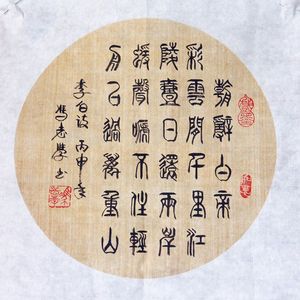 朝辭白帝
彩雲間千里江
陵壹日還兩岸
猨聲嗁不住輕
舟已過萬重山
李白詩 丙申年
志學书